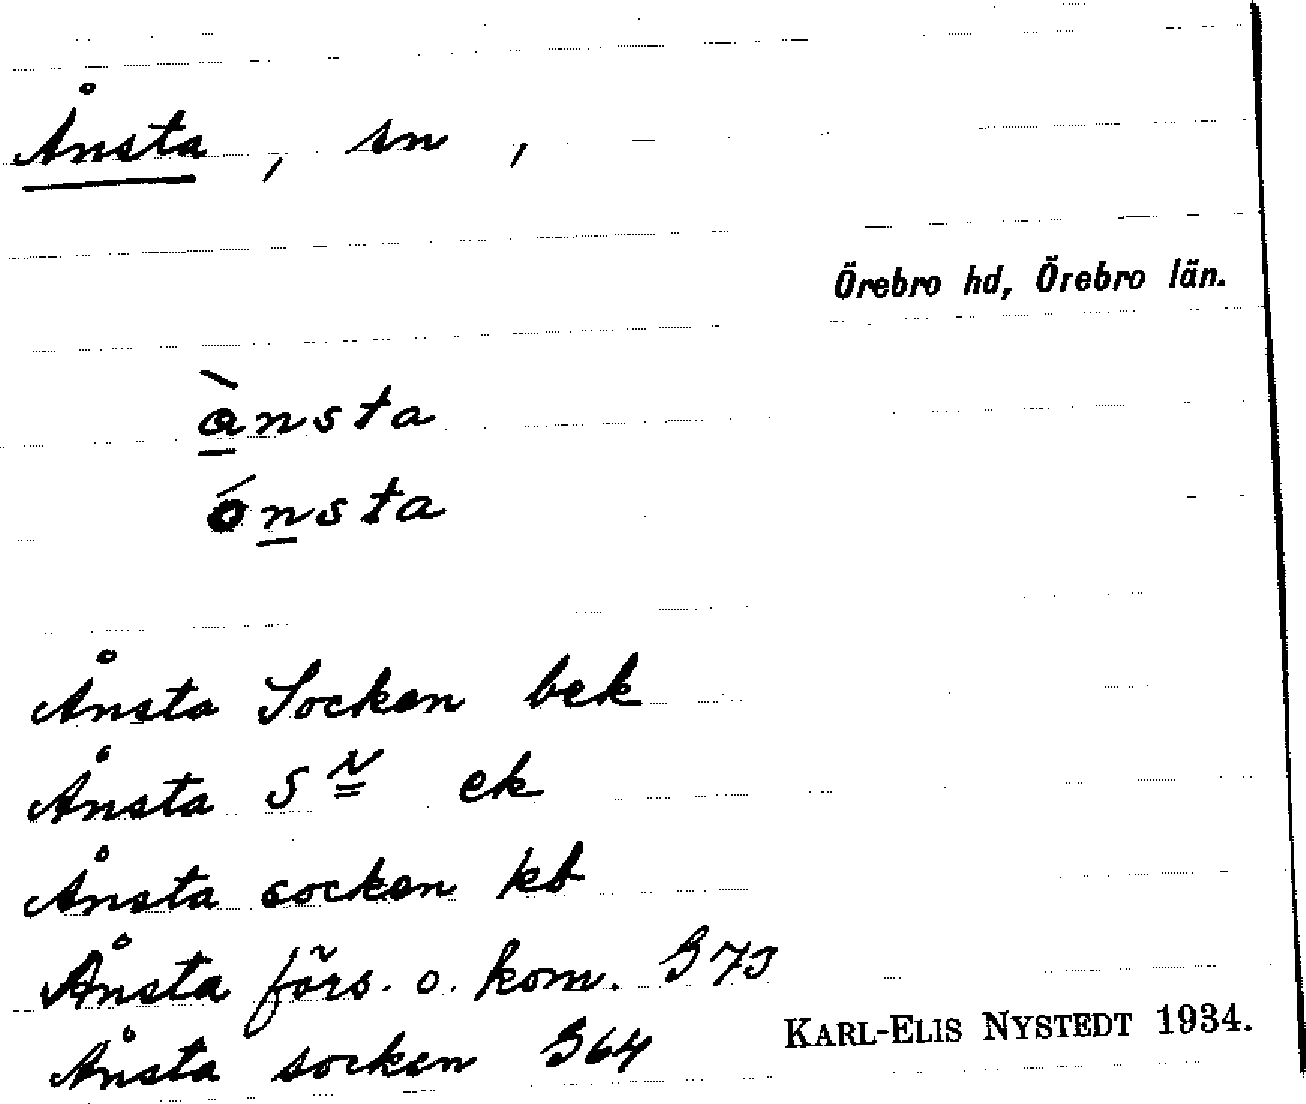 Ånsta, sn,
Örebro hd, Örebro län.
ànsta
ónsta
Ånsta Socken bek
Ånsta Sn ek
Ånsta socken kb
Ånsta förs. o. kom. G 73
Ånsta socken G64
KARL-ELIS NYSTEDT 1934.